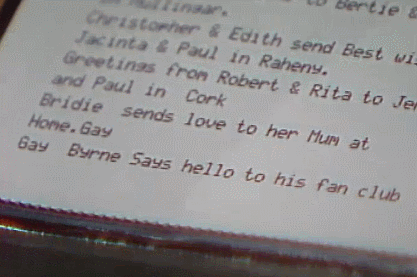 in Mullingar. to Bertie &
Christopher & Edith send Best
Jacinta & Paul in Raheny.
Greetings from Robert & Rita to
and Paul in Cork
Bridie sends love to her Mum at
Home.Gay
Gay Byrne Says hello to his fan club